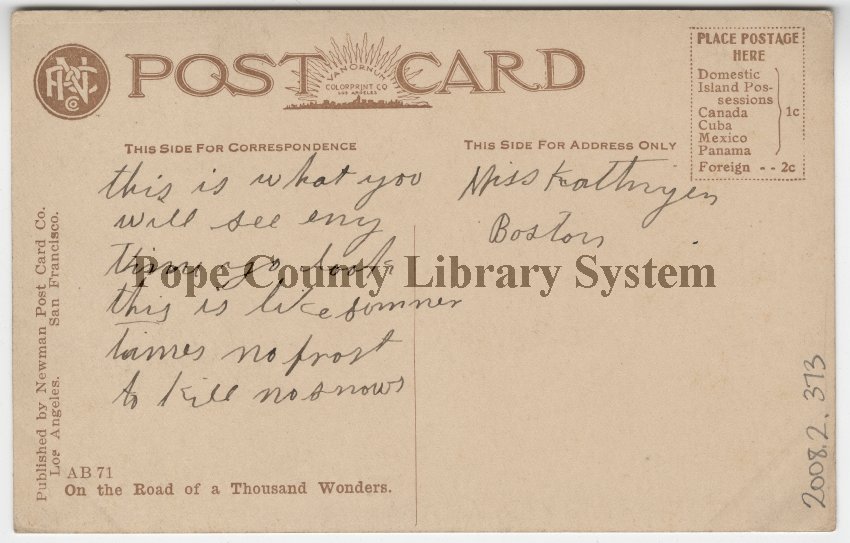 POST CARD
VAN ORNUM
COLORPRINT CO
LOS ANGELES
PLACE POSTAGE
HERE
Domestic
Island Pos-
sessions
Canada
Cuba
Mexico
Panama
1c
Foreign -- 2c
THIS SIDE FOR CORRESPONDENCE
THIS SIDE FOR ADDRESS ONLY
this is what you
will see eny
time go
this is like sommer
times no frost
to kill no snows
Miss Kathryen
Boston
Pope County Library System
Published by Newman Post Card Co.
Los Angeles. San Francisco.
AB 71
On the Road of a Thousand Wonders.
2008.2.373